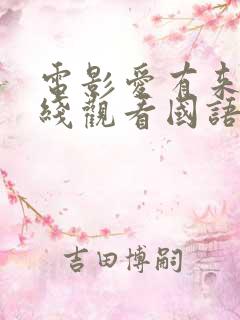 電影愛有来
綫觀看國語
吉田博嗣